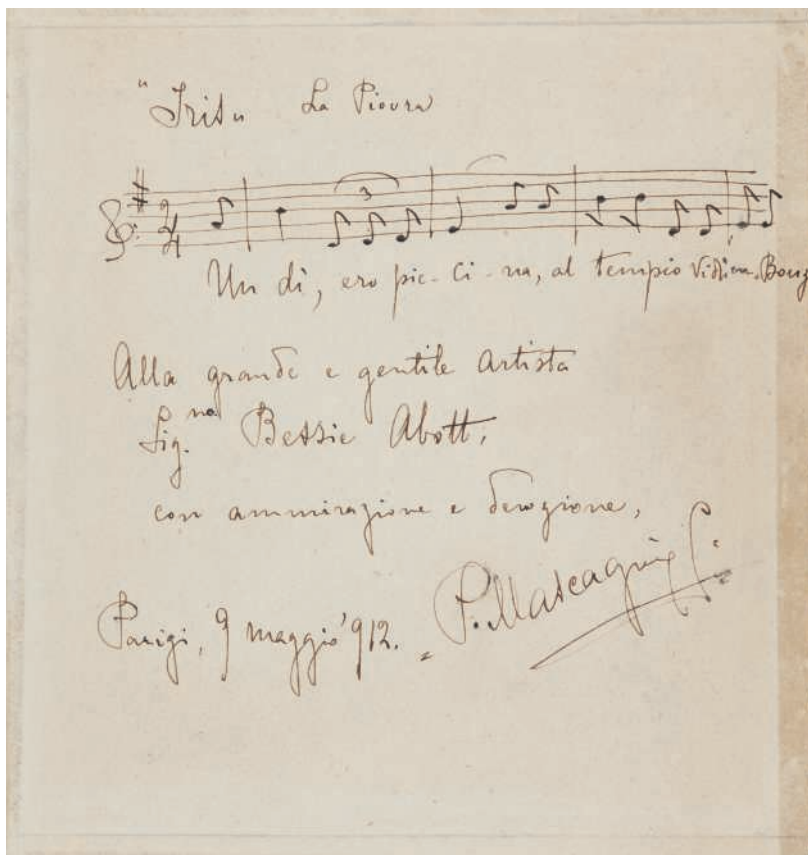 "Iris" La Piovra
3
2
4
Un dì, ero pic-ci-na, al tempio vidi un Bonz
Alla grande e gentile artista
Sig.na Bessie Abott,
con ammirazione e devozione,
Parigi, 9 maggio '912. P. Mascagni